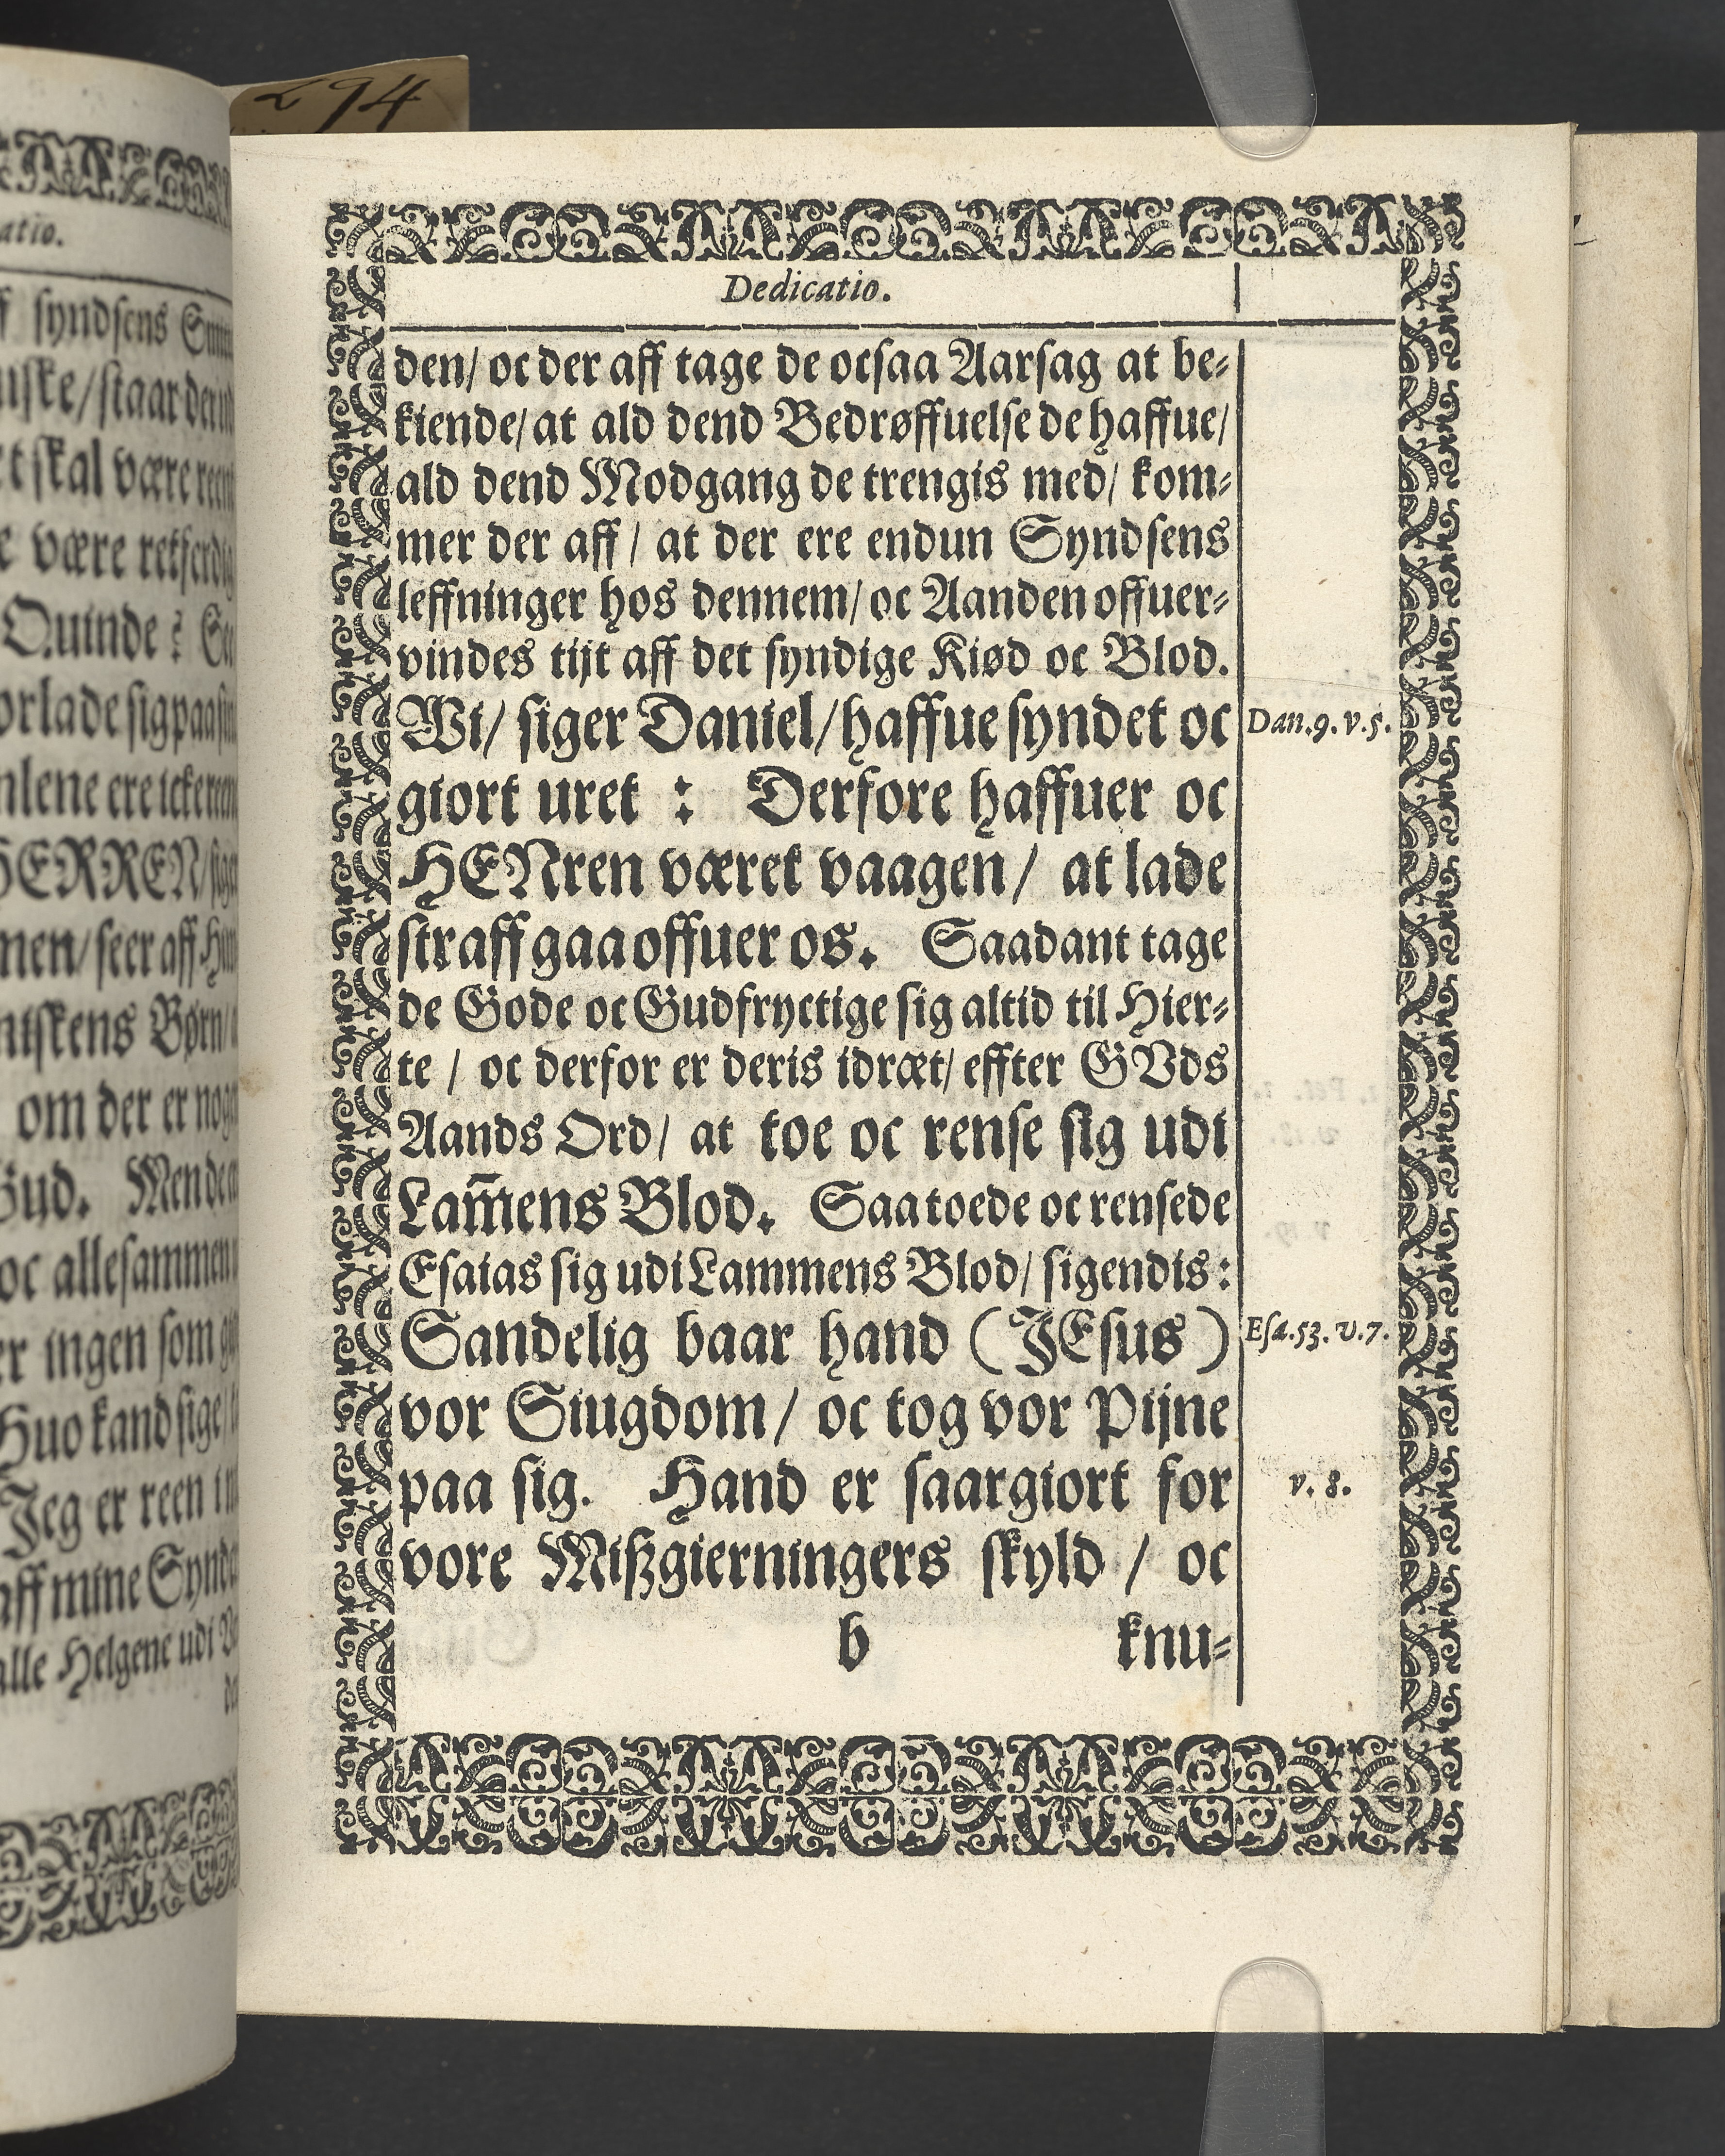 294
atio.
syndsens
staar
skal være
være
Quinde :
forlade sig paa
ere icke
HERREN/
men/ seer aff
Børn/
om der er
Gud.
oc allesammen
ingen som
Huo kand sige/
Jeg er reen i
aff mine
alle Helgene udi
Dedicatio.
den/ oc der aff tage de ocsaa Aarsag at be⸗
kiende/ at ald dend Bedrøffuelse de haffue/
ald dend Modgang de trengis med/ kom⸗
mer der aff / at der ere endun Syndsens
leffninger hos dennem/ oc Aanden offuer⸗
vindes tijt aff det syndige Kiød oc Blod.
Wi/ siger Daniel/ haffue syndet oc
Dan.9.v.5.
giort uret : Derfore haffuer oc
HENren været vaagen / at lade
straff gaa offuer os. Saadant tage
de Gode oc Gudfryctige sig altid til Hier⸗
te / oc derfor er deris idræt/ effter GVds
Aands Ord/ at toe oc rense sig udi
Lam̅ens Blod. Saa toede oc rensede
Esaias sig udi Lammens Blod/ sigendis :
Sandelig baar hand (JEsus)
Esa.53.v.7.
vor Siugdom / oc tog vor Pijne
paa sig. Hand er saargiort for
v. 8.
vore Mißgierningers skyld / oc
b knu⸗